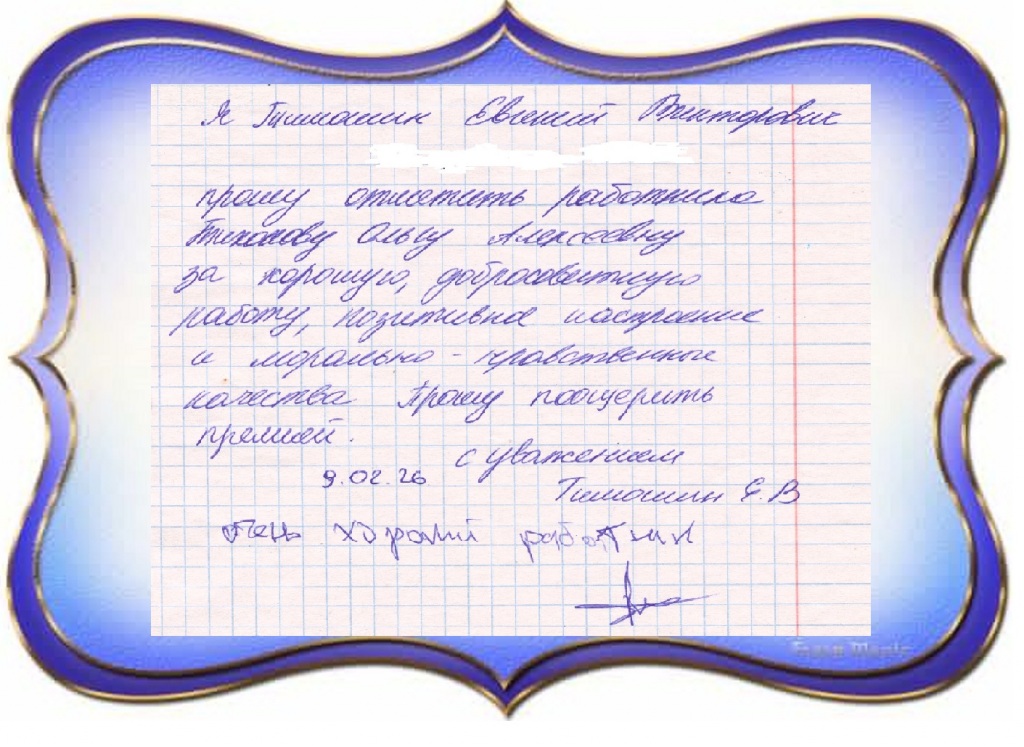 Я Тимошин Евгений Викторович
прошу отметить работника
Тихонову Ольгу Алексеевну
за хорошую, добросовестную
работу, позитивное настроение
и морально-нравственные
качества Прошу поощерить
премией.
с уважением
9.02.26
Тимошин Е.В
очень хороший работник